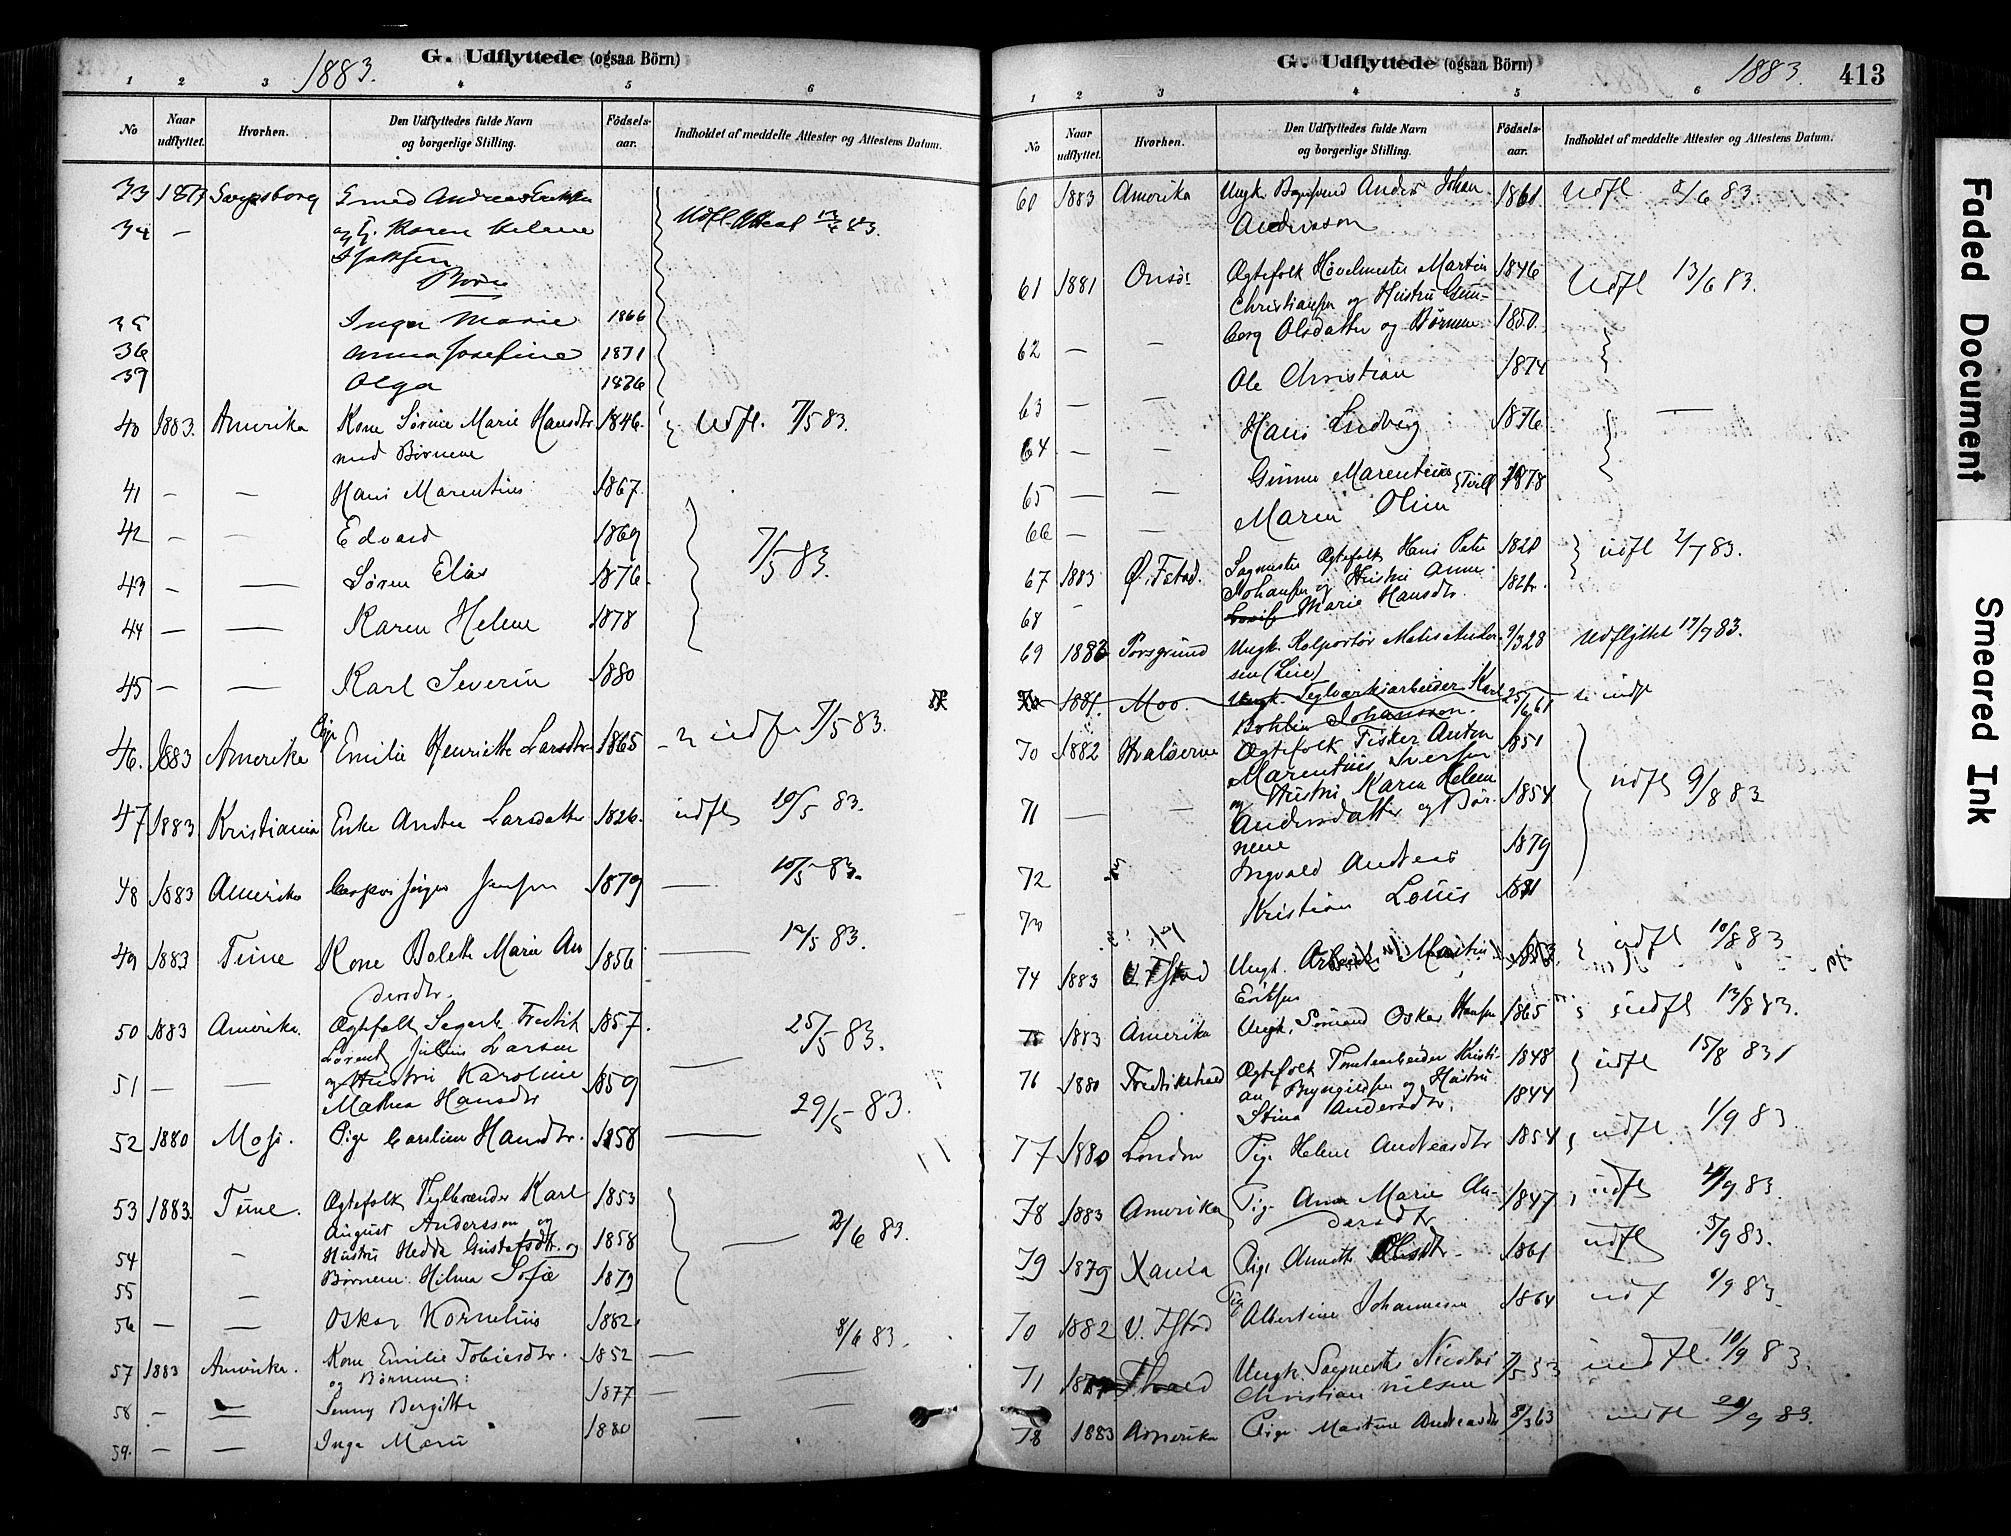 G. Udflyttede (ogsaa Börn)
1883.
1 2 3 4 5 6
No
Naar udflyttet.
Hvorhen.
Den Udflyttedes fulde Navn og borgerlige Stilling.
Födsels-aar.
Indholdet af meddelte Attester og Attestens Datum.
33 Sarpsborg Andreas
34 — og Karen Helene
Isaksen
Børn
35 Inga Marie 1866
36 Anna Josefine 1871
37 Olga 1876
40 1883. Amerika Kone Sørine Marie Hansdtr 1846. Udfl. 7/5 83.
med Børnene
41 — — Hans Marentius 1867.
42 — — Edvard 1869
7/5 83.
43 — — Søren Elias 1876.
44 — — Karen Helene 1878
45 — — Karl Severin 1880
46. 1883 Amerika Pige Emilie Henriette Larsdtr 1865 — udfl 7/5 83.
47 1883. Kristiania Enke Andrea Larsdatter 1826. udfl 10/5 83.
48 1883 Amerika Jørgen Jensen 1879 — 10/5 83.
49 1883 Tune Kone Bolette Marie An 1856 — 12/5 83.
dersdtr.
50 1883 Amerika. Ægtefolk Fredrik 1857. 25/5 83.
Julius Larsen
51 — — og Hustru Karoline 1859 —
Mathea Hansdtr
29/5 83.
52 1880 Moss. Pige Caroline Hansdtr. 1858 —
53 1883. Tune. Ægtefolk Teglbrænder Karl 1853
August Andersson og
2/6 83.
54 — Hustru Hedda Gustafsdtr. og 1858 —
55 — Børnene. Hilma Sofie 1879
56 — — Oskar Kornelius 1882.
8/6 83.
57 1883 Amerika. Kone Emilie Tobiasdtr. 1852 —
og Børnene:
58 — — Jenny Bergitte 1877 — —
59. — — Inga Marie 1880 — —
G. Udflyttede (ogsaa Börn)
1883.
413
1 2 3 4 5 6
No
Naar udflyttet.
Hvorhen.
Den Udflyttedes fulde Navn og borgerlige Stilling.
Födsels-aar.
Indholdet af meddelte Attester og Attestens Datum.
60 1883 Amerika Ungk. Anders Johan 1861 Udfl /6 83.
Andersson
61 1881 Onsø. Ægtefolk Høvelmester Martin 1846 Udfl 13/6 83.
Christiansen og Hustru Gun-
borg Olsdatter og Børnene 1850.
62 — —
Ole Christian 1874
63 — — Hans Ludvig 1876. —
64 — — Gunne Marentius Tvill 1878
65 — —
Maren Oline
66 — —
67 1883 Ø. Fstad. Sagmester Ægtefolk Hans Peter 1828 udfl 2/7 83.
Johansen og Hustru Anne
68 — Marie Hansdtr.
69 1883 Porsgrund Ungk. Kolportør Ander- 9/3 28 Udflyttet 17/7 83.
sen (Lie)
1881. Moss. Ungk. Teglværksarbeider Karl 25/6 61
Johansson.
70 1882 Hvaløerne Ægtefolk Fisker Anton 1851
Marentius Iversen
og Hustru Karen Helene 1854 udfl 9/8 83
71 — — Andersdatter og Bør-
nene
72 Ingvald Andreas 1879
73 Kristian Louis 1881
74 1883 V. Fstad Ungk. Martin 1853. udfl 10/8 83
Eriksen
1883 Amerika Ungk. Sømand Oskar Hansen 1865 udfl 13/8 83.
76 1880 Fredrikshald Ægtefolk Tomtearbeider Kristi- 1848 udfl 15/8 83
an Bryngildsen og Hustru
Stina Andersdtr. 1844
77 1880 London Pige Helene Andreasdtr 1854 udfl 1/9 83
78 1883 Amerika Pige Anna Marie An- 1847 udfl 4/9 83.
dersdtr
79 1879 Xania Pige Annette Olsdtr 1861 udfl 5/9 83.
70 1882 V. Fstad Pige Albertine Johannesen 1864 udf /9 83
71 Fhald Ungk Sagmester Nicolai 7/5 53 udfl. 10/9 83.
Christian Nilsen
78 1883 Amerika Pige Martine Andreasdtr 8/3 63 udfl /9 83.
Faded Document
Smeared Ink